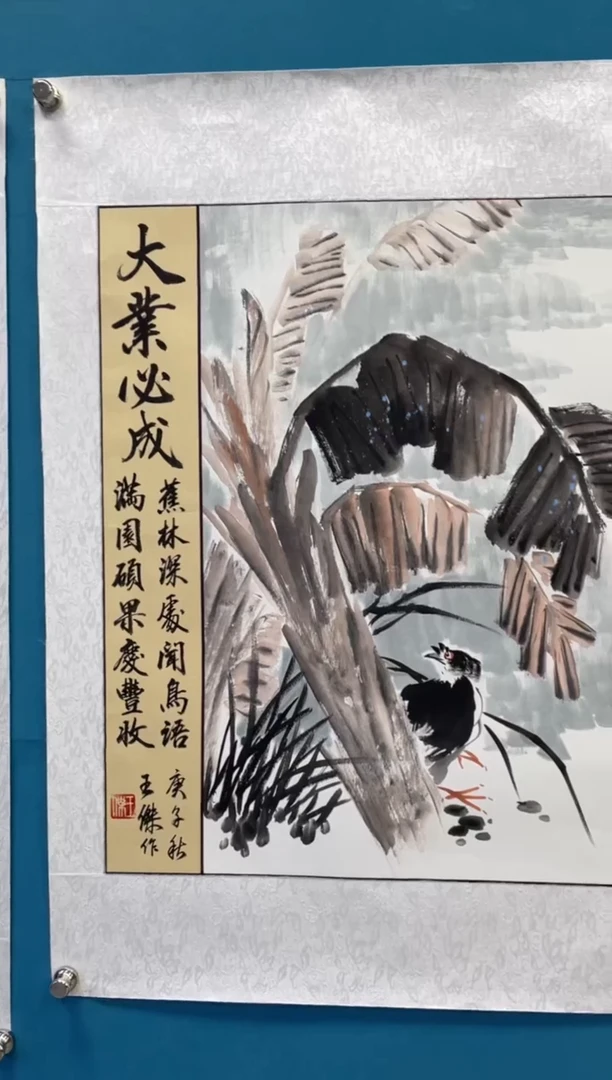 大業必成
蕉林深處聞鳥語
滿園碩果慶豐收
庚子秋
王傑作